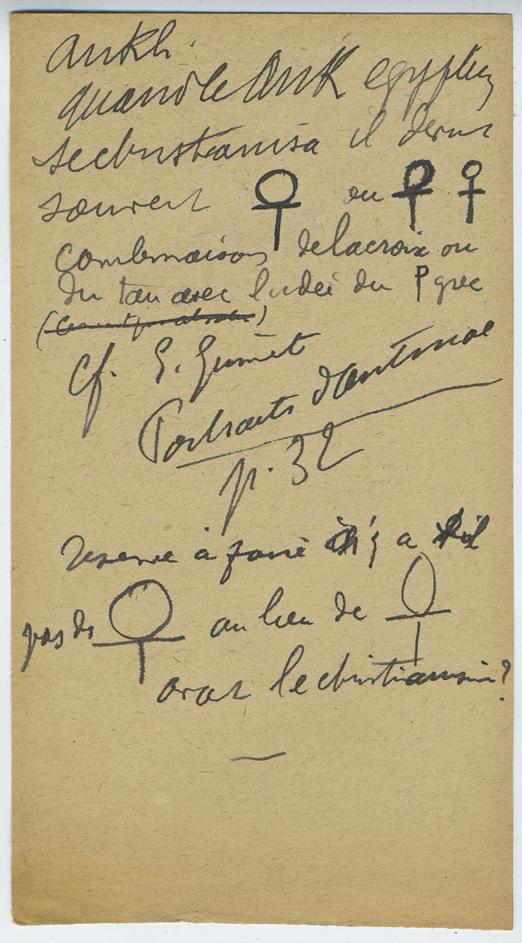 ankh.
quand le Ank egyptien
se christianisa il devint
souvent ou
combinaison de la croix ou
du tau avec l'idée du P grec
cf. E. Guimet
Portraits d'Antinoé
p. 32
reserve à faire n'y a t'il
pas de au lieu de
avant le christianisme?